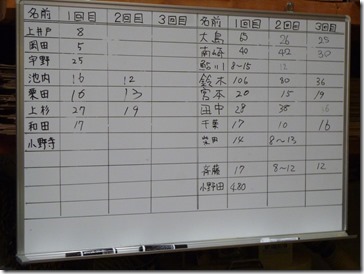 名前 1回目 2回目 3回目 名前 1回目 2回目 3回目
上井戸 8 大島 15 26 25
岡田 5 南崎 40 42 30
宇野 25 鮎川 8~15 12
池内 16 12 鈴木 106 30 36
栗田 16 13 宮本 20 15 19
上杉 27 19 田中 28 38 16
和田 17 千葉 17 10 16
小野寺 柴田 14 8~13
斉藤 17 8~12 12
小野田 480